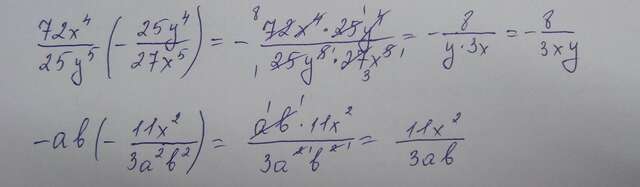 72x⁴/25y⁵ (-25y⁴/27x⁵) = -72x⁴·25y⁴/25y⁵·27x⁵ = -8/y·3x = -8/3xy
-ab(-11x²/3a²b²) = ab·11x²/3a²b² = 11x²/3ab